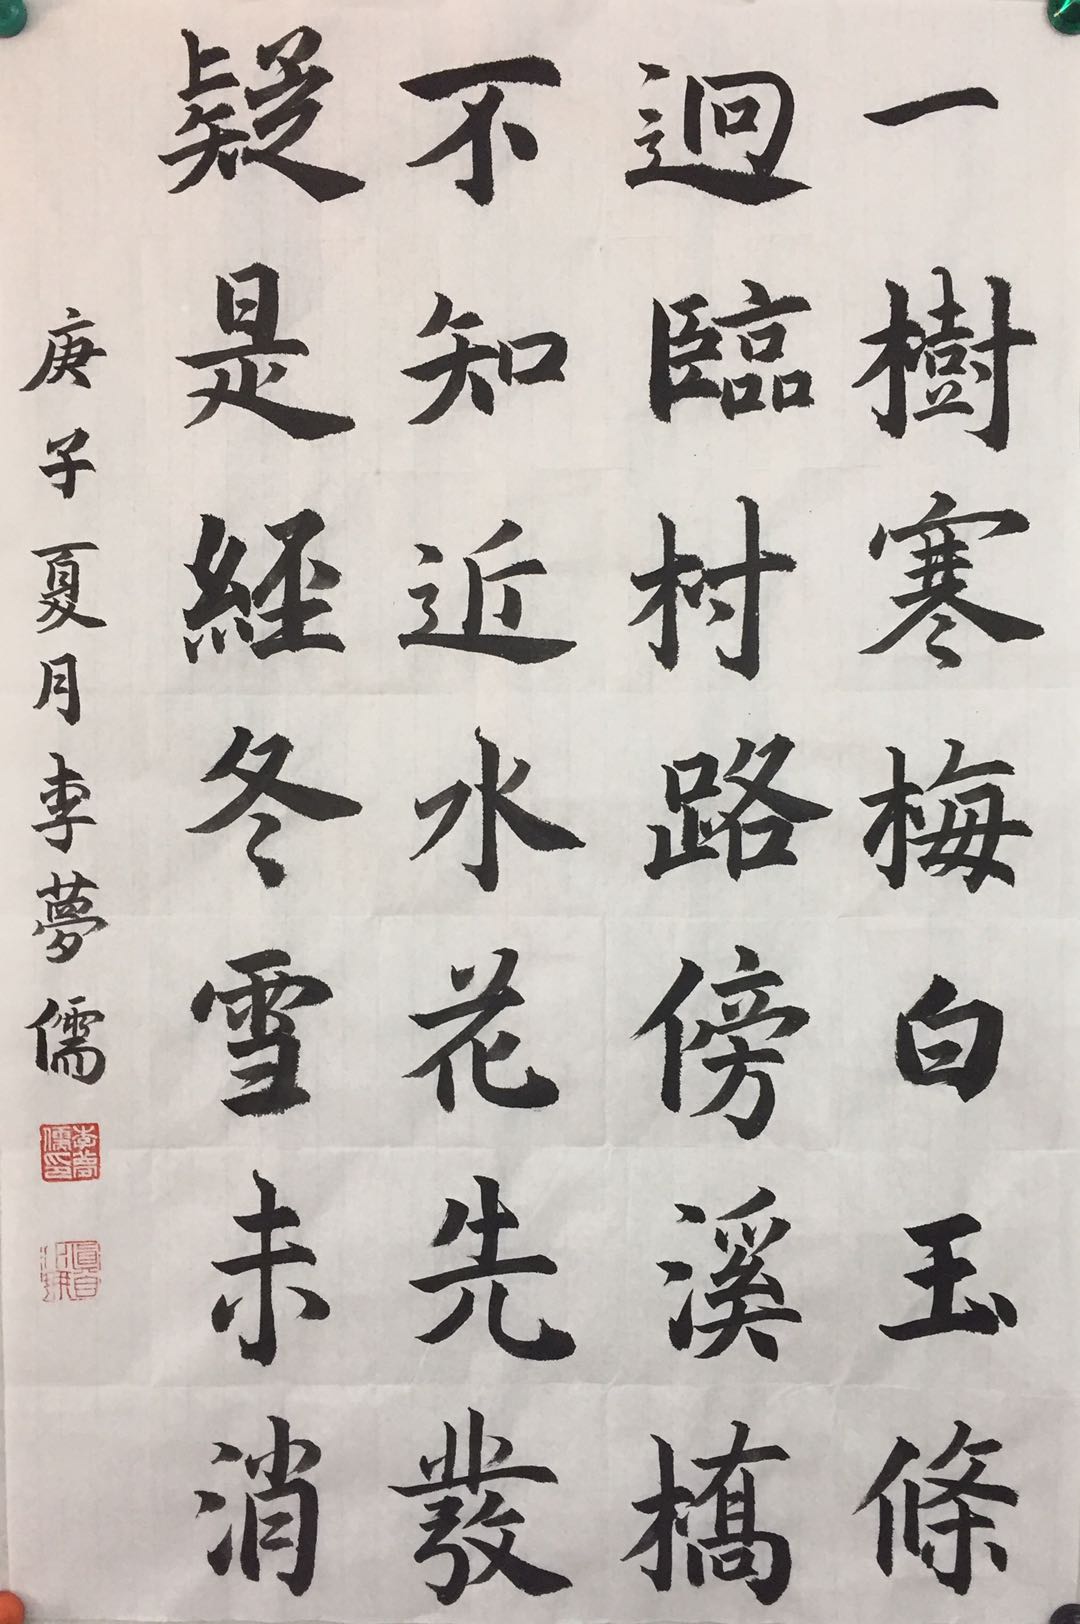 一樹寒梅白玉條
迥臨村路傍溪橋
不知近水花先發
疑是經冬雪未消
庚子夏月李夢儒
李夢儒印